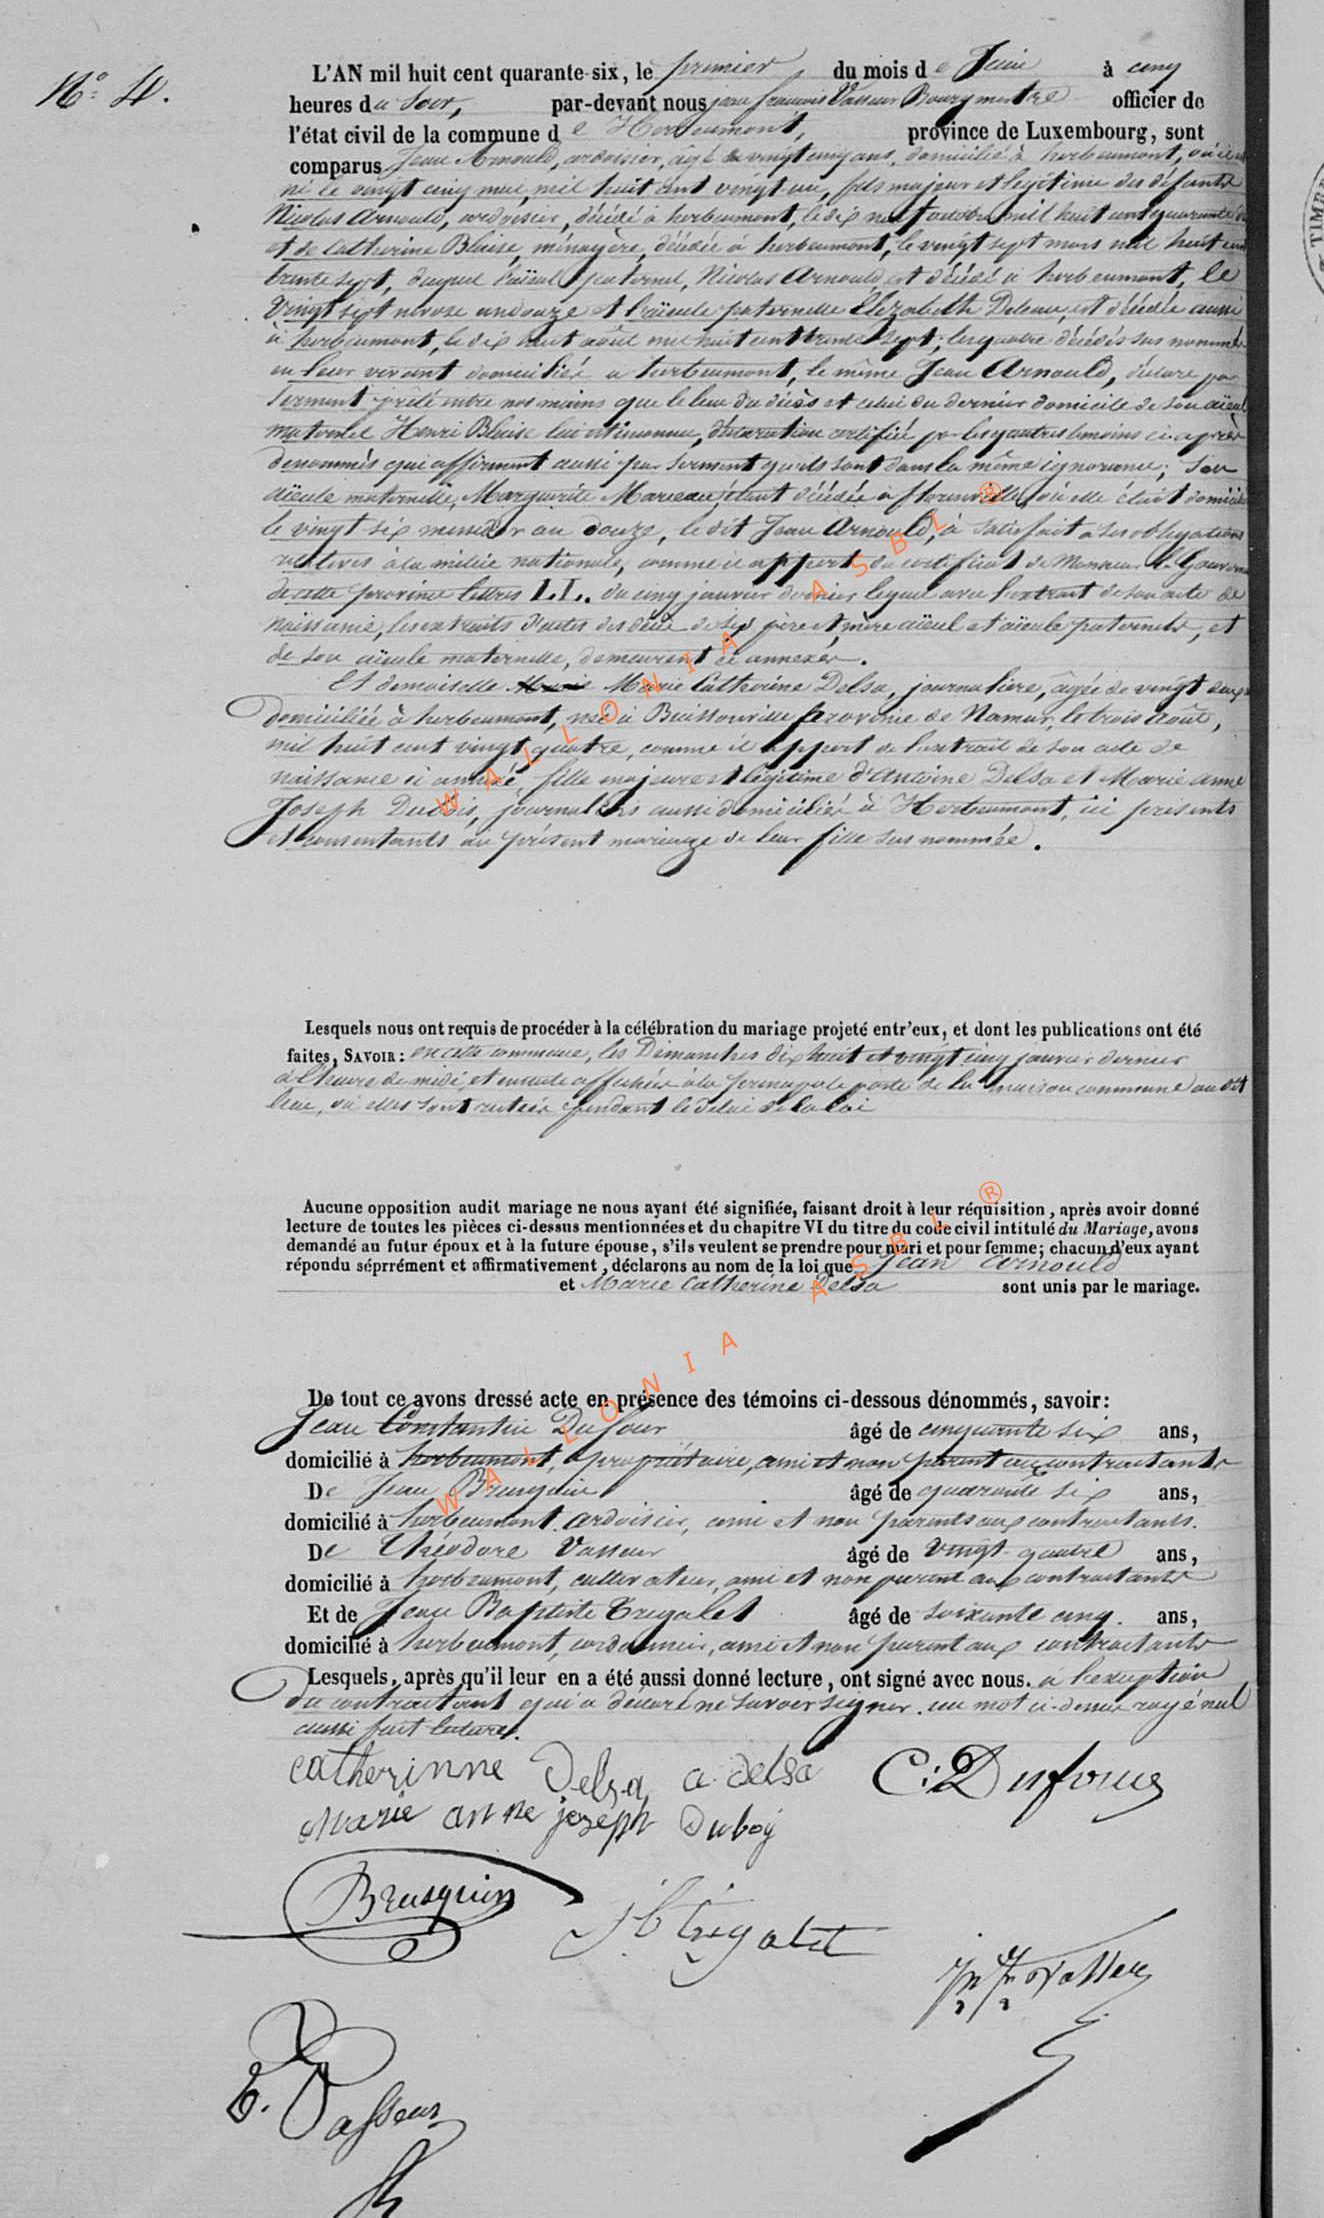 N° 4.
L'AN mil huit cent quarante-six, le premier du mois de Juin à cinq
heures du soir, par-devant nous jean françois Vasseur Bourgmestre officier de
l'état civil de la commune de Herbeumont, province de Luxembourg, sont
comparus Jean Arnould, ardoisier, âgé de vingt cinq ans, domicilié à herbeumont, où il est
né le vingt cinq mai, mil huit cent vingt un, fils majeur et légitime des défunts
Nicolas Arnould, ardoisier, décédé à herbeumont, le dix neuf octobre mil huit cent quarante
et de Catherine Blaise, ménagère, décédée à herbeumont, le vingt sept mars mil huit cent
trente sept, duquel l'aïeul paternel, Nicolas Arnould, est décédé à herbeumont, le
vingt sept nivose an douze et l'aïeule paternelle Elizabeth Deleau, est décédée aussi
à herbeumont, le dix août mil huit cent trente sept; les quatre décédés sus nommés
en leur vivant domiciliés à herbeumont, le même Jean Arnould, déclare par
serment prêté entre nos mains que le lieu du décès et celui du dernier domicile de son aïeul
maternel Henri Blaise lui est inconnu, déclaration certifiée par les quatres témoins ci-après
denommés qui affirment aussi par serment qu'ils sont dans la même ignorance; Son
aïeule maternelle, Marguerite Mareau, étant décédée à florenville, où elle était domiciliée
le vingt six messidor an douze, le dit Jean Arnould, à satisfait à ses obligations
relatives à la milice nationale, comme il appert du certificat de Monsieur le Gouverneur
de cette province lettres LL. du cinq janvier dernier lequel avec l'extrait de son acte de
naissance, les extraits d'actes des décès de ses père et mère aïeul et aïeule paternels, et
de son aïeule maternelle, demeurent ci annexés.
Et demoiselle Marie Marie Catherine Delsa, journalière, âgée de vingt deux
domiciliée à herbeumont, née à Buissonville province de Namur, le trois août,
mil huit cent vingt quatre, comme il appert de l'extrait de son acte de
naissance ci annexé fille majeure et légitime d'Antoine Delsa et Marie anne
Joseph Dubois, journaliers aussi domiciliés à Herbeumont, ici présents
et consentants au présent mariage de leur fille sus nommée.
Lesquels nous ont requis de procéder à la célébration du mariage projeté entr'eux, et dont les publications ont été
faites, SAVOIR: en cette commune, les Dimanches dix huit et vingt cinq janvier dernier
à l'heure de midi, et ensuite affichées à la principale porte de la maison commune au dit
lieu, où elles sont restées pendant le délai de la loi
Aucune opposition audit mariage ne nous ayant été signifiée, faisant droit à leur réquisition, après avoir donné
lecture de toutes les pièces ci-dessus mentionnées et du chapitre VI du titre du code civil intitulé du Mariage, avons
demandé au futur époux et à la future épouse, s'ils veulent se prendre pour mari et pour femme; chacun d'eux ayant
répondu séprrément et affirmativement, déclarons au nom de la loi que Jean Arnould
et Marie Catherine Delsa sont unis par le mariage.
De tout ce avons dressé acte en présence des témoins ci-dessous dénommés, savoir:
Jean Constantin Dufour âgé de cinquante six ans,
domicilié à herbeumont, propriétaire, ami et non parent aux contractants
De Jean Brusquin âgé de quarante six ans,
domicilié à herbeumont, ardoisier, ami et non parents aux contractants.
De Théodore Vasseur âgé de vingt quatre ans,
domicilié à herbeumont, cultivateur, ami et non parent aux contractants
Et de Jean Baptiste Trigalet âgé de soixante cinq. ans,
domicilié à herbeumont, cordonnier, ami et non parent aux contractants
Lesquels, après qu'il leur en a été aussi donné lecture, ont signé avec nous. à l'exception
du contractant qui a déclaré ne savoir signer. un mot ci-dessus rayé nul
aussi fait lecture.
catherinne Delsa a delsa C: Dufour
Marie anne joseph Duboy
Brusquin
J b trigalet
jn fr Vasseur
T. Vasseur
TIMBRE
WALLONIA ASBL ®
WALLONIA ASBL ®